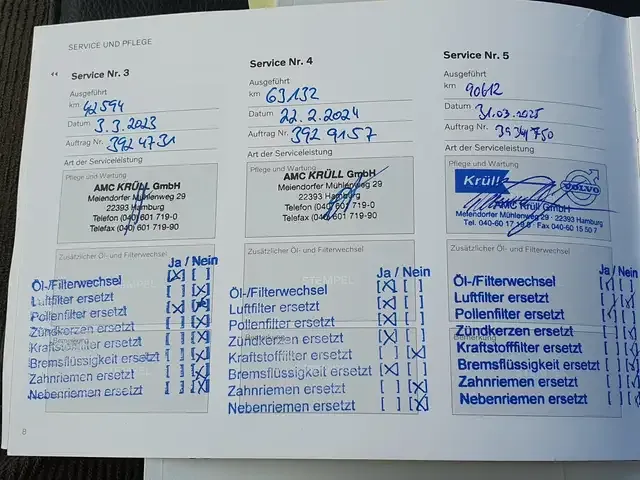 SERVICE UND PFLEGE
Service Nr. 3
Ausgeführt
km 42594
Datum 3.3.2023
Auftrag Nr. 3924731
Art der Serviceleistung
Pflege und Wartung
AMC KRÜLL GmbH
Meiendorfer Mühlenweg 29
22393 Hamburg
Telefon (040) 601 719-0
Telefax (040) 601 719-90
Zusätzlicher Öl- und Filterwechsel
Ja / Nein
Öl-/Filterwechsel [X] [ ]
Luftfilter ersetzt [ ] [X]
Pollenfilter ersetzt [X] [X]
Zündkerzen ersetzt [ ] [X]
Kraftstofffilter ersetzt [ ] [X]
Bremsflüssigkeit ersetzt [ ] [X]
Zahnriemen ersetzt [ ] [X]
Nebenriemen ersetzt [ ] [X]
8
Service Nr. 4
Ausgeführt
km 63132
Datum 22.2.2024
Auftrag Nr. 3929157
Art der Serviceleistung
Pflege und Wartung
AMC KRÜLL GmbH
Meiendorfer Mühlenweg 29
22393 Hamburg
Telefon (040) 601 719-0
Telefax (040) 601 719-90
Zusätzlicher Öl- und Filterwechsel
STEMPEL
Ja / Nein
Öl-/Filterwechsel [X] [ ]
Luftfilter ersetzt [X] [ ]
Pollenfilter ersetzt [X] [ ]
Zündkerzen ersetzt [X] [ ]
Kraftstofffilter ersetzt [ ] [X]
Bremsflüssigkeit ersetzt [X] [ ]
Zahnriemen ersetzt [ ] [X]
Nebenriemen ersetzt [ ] [X]
Service Nr. 5
Ausgeführt
km 90612
Datum 31.03.2025
Auftrag Nr.
Art der Serviceleistung
Pflege und Wartung
Krüll
VOLVO
AMC Krüll GmbH
Meiendorfer Mühlenweg 29 · 22393 Hamburg
Tel. 040-60 17 19 0 · Fax 040-60 15 50 7
Zusätzlicher Öl- und Filterwechsel
Ja / Nein
Öl-/Filterwechsel
Luftfilter ersetzt
Pollenfilter ersetzt
Zündkerzen ersetzt
Bemerkung
Kraftstofffilter ersetzt
Bremsflüssigkeit ersetzt
Zahnriemen ersetzt
Nebenriemen ersetzt